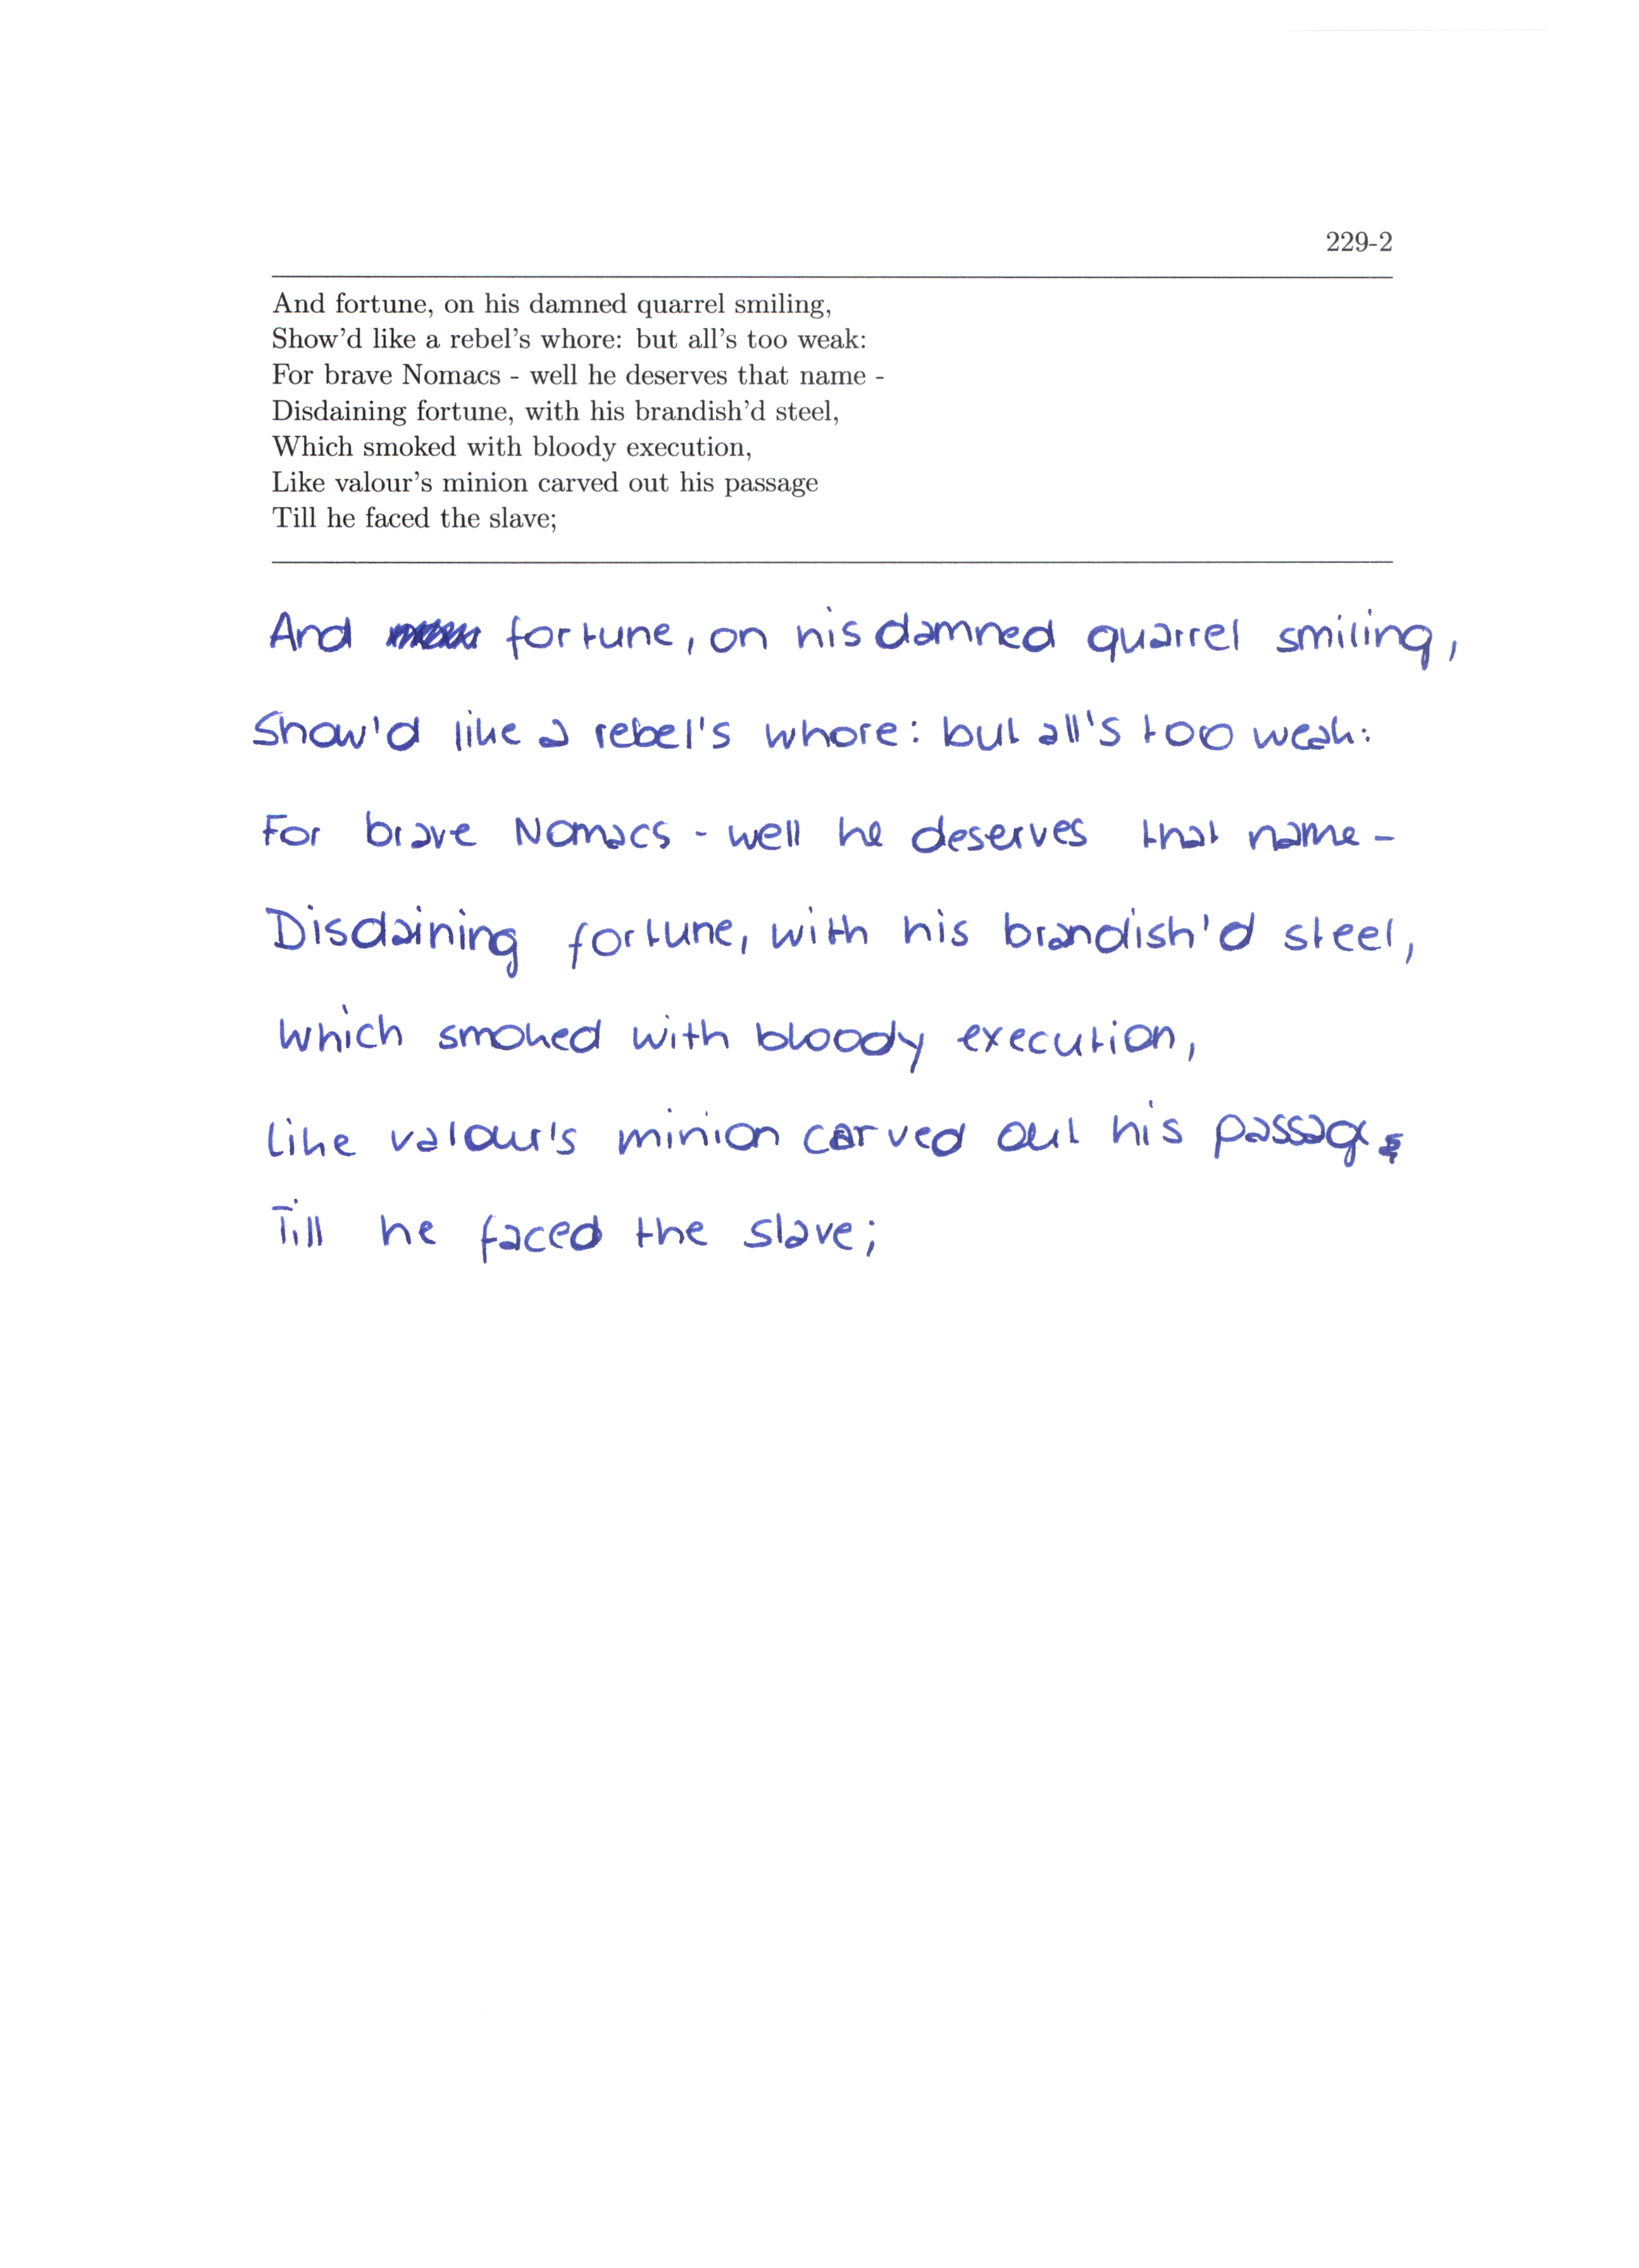 229-2
And fortune, on his damned quarrel smiling,
Show'd like a rebel's whore: but all's too weak:
For brave Nomacs - well he deserves that name -
Disdaining fortune, with his brandish'd steel,
Which smoked with bloody execution,
Like valour's minion carved out his passage
Till he faced the slave;
And fortune, on his damned quarrel smiling,
Show'd like a rebel's whore: but all's too weak:
For brave Nomacs - well he deserves that name -
Disdaining fortune, with his brandish'd steel,
which smoked with bloody execution,
like valour's minion carved out his passage
Till he faced the slave;